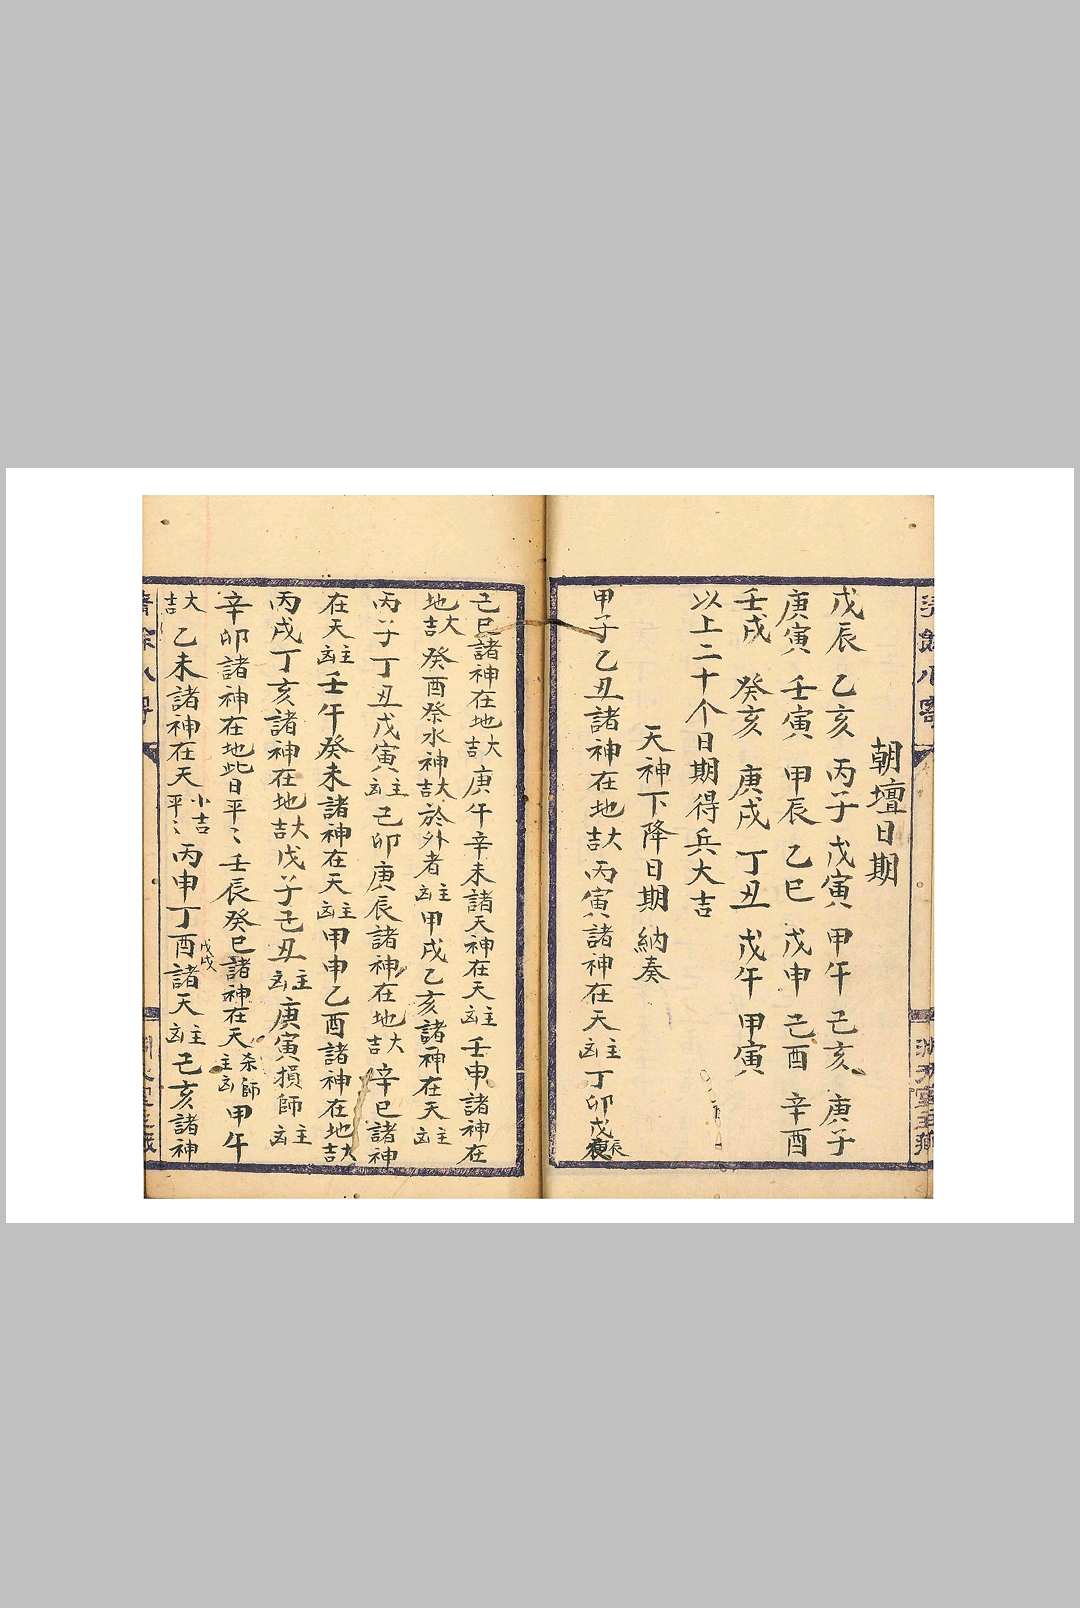 朝壇日期
戊辰 乙亥 丙子 戊寅 甲午 己亥 庚子
庚寅 壬寅 甲辰 乙巳 戊申 己酉 辛酉
壬戌 癸亥 庚戌 丁丑 戊午 甲寅
以上二十个日期得兵大吉
天神下降日期 納奏
甲子乙丑諸神在地大吉丙寅諸神在天主凶丁卯戊辰
己巳諸神在地大吉庚午辛未諸天神在天主凶壬申諸神在
地大吉癸酉祭水神大吉於外者主凶甲戌乙亥諸神在天主凶
丙子丁丑戊寅主凶己卯庚辰諸神在地大吉辛巳諸神
在天主凶壬午癸未諸神在天主凶甲申乙酉諸神在地大吉
丙戌丁亥諸神在地大吉戊子己丑主凶庚寅損師主凶
辛卯諸神在地此日平〻壬辰癸巳諸神在天杀師主凶甲午
大吉乙未諸神在天小吉平〻丙申丁酉戊戌諸天主凶己亥諸神